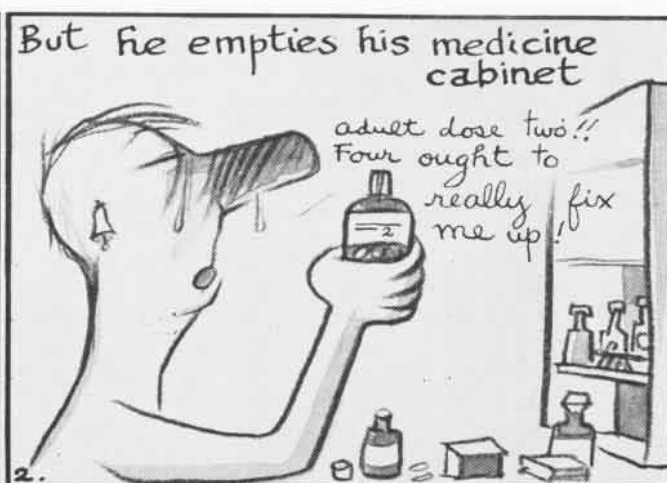 But he empties his medicine
cabinet
adult dose two!!
Four ought to
really fix
me up!
2
2.